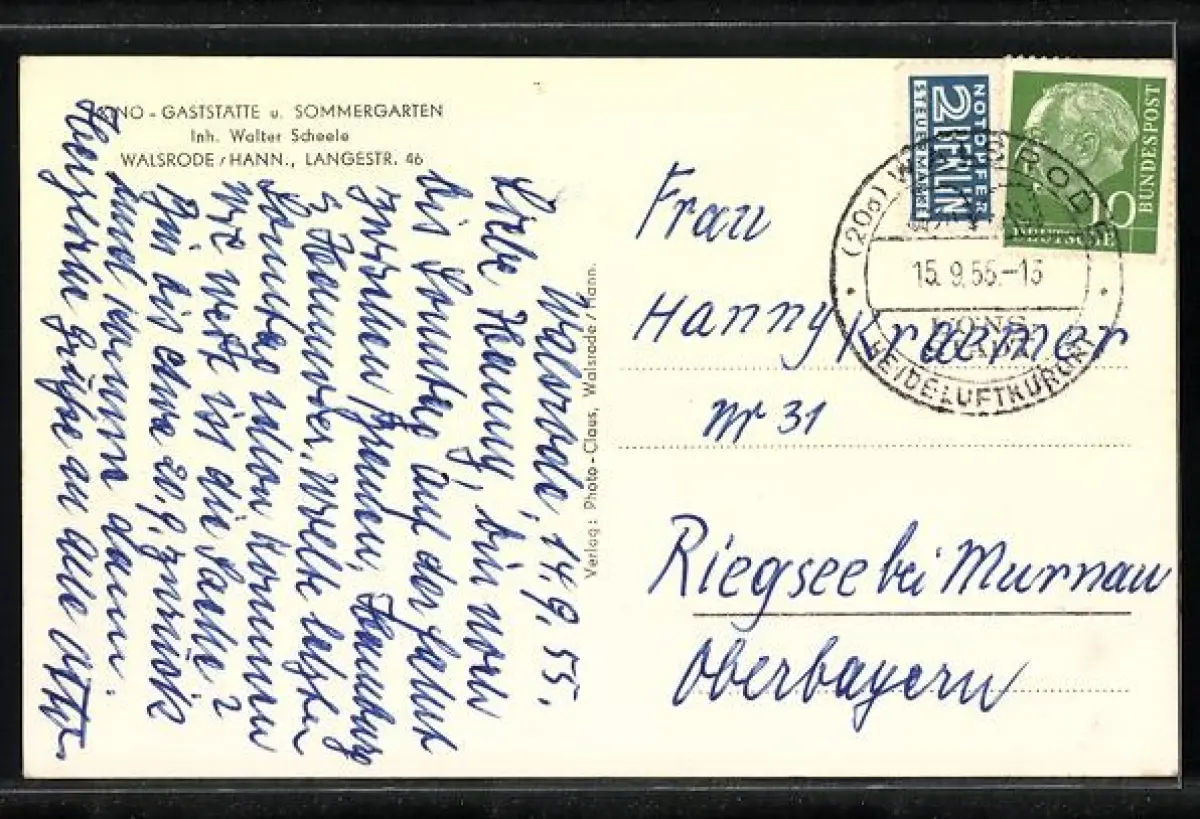 ONO - GASTSTÄTTE u. SOMMERGARTEN
Inh. Walter Scheele
WALSRODE / HANN., LANGESTR. 46
Walsrode, 14.9.55.
Liebe Hanny, bin noch
bis Sonntag auf der Fahrt
zwischen Bremen, Hamburg
& Hannover. Wollte letzten
Sonntag schon kommen
wie ist die Sache?
Bin bis etwa 20.9. zurück
und komme dann.
Herzliche Grüße an alle
Verlag: Photo-Claus, Walsrode/Hann.
NOTOPFER
2 BERLIN
STEUERMARKE
DEUTSCHE
BUNDESPOST
10
(20a) WALSRODE
15.9.55.-13
HEIDE-LUFTKURORT
Frau
Hanny Kraemer
Nr 31
Riegsee bei Murnau
Oberbayern